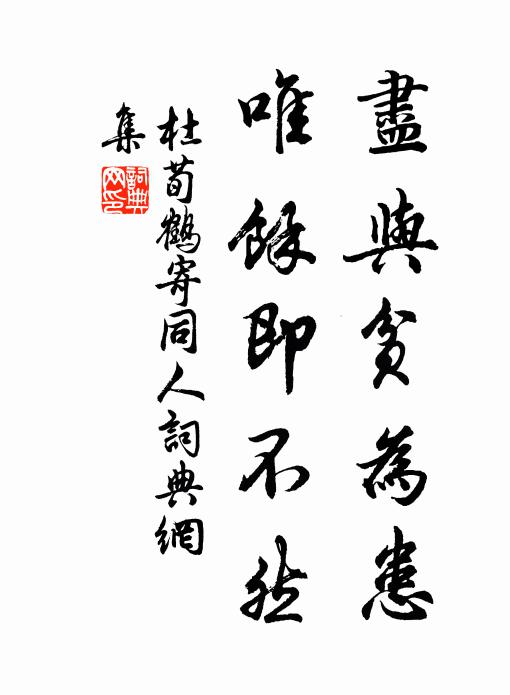 盡與貧為患
唯餘即不然
杜荀鶴寄同人詞典網
集
詞典
网印